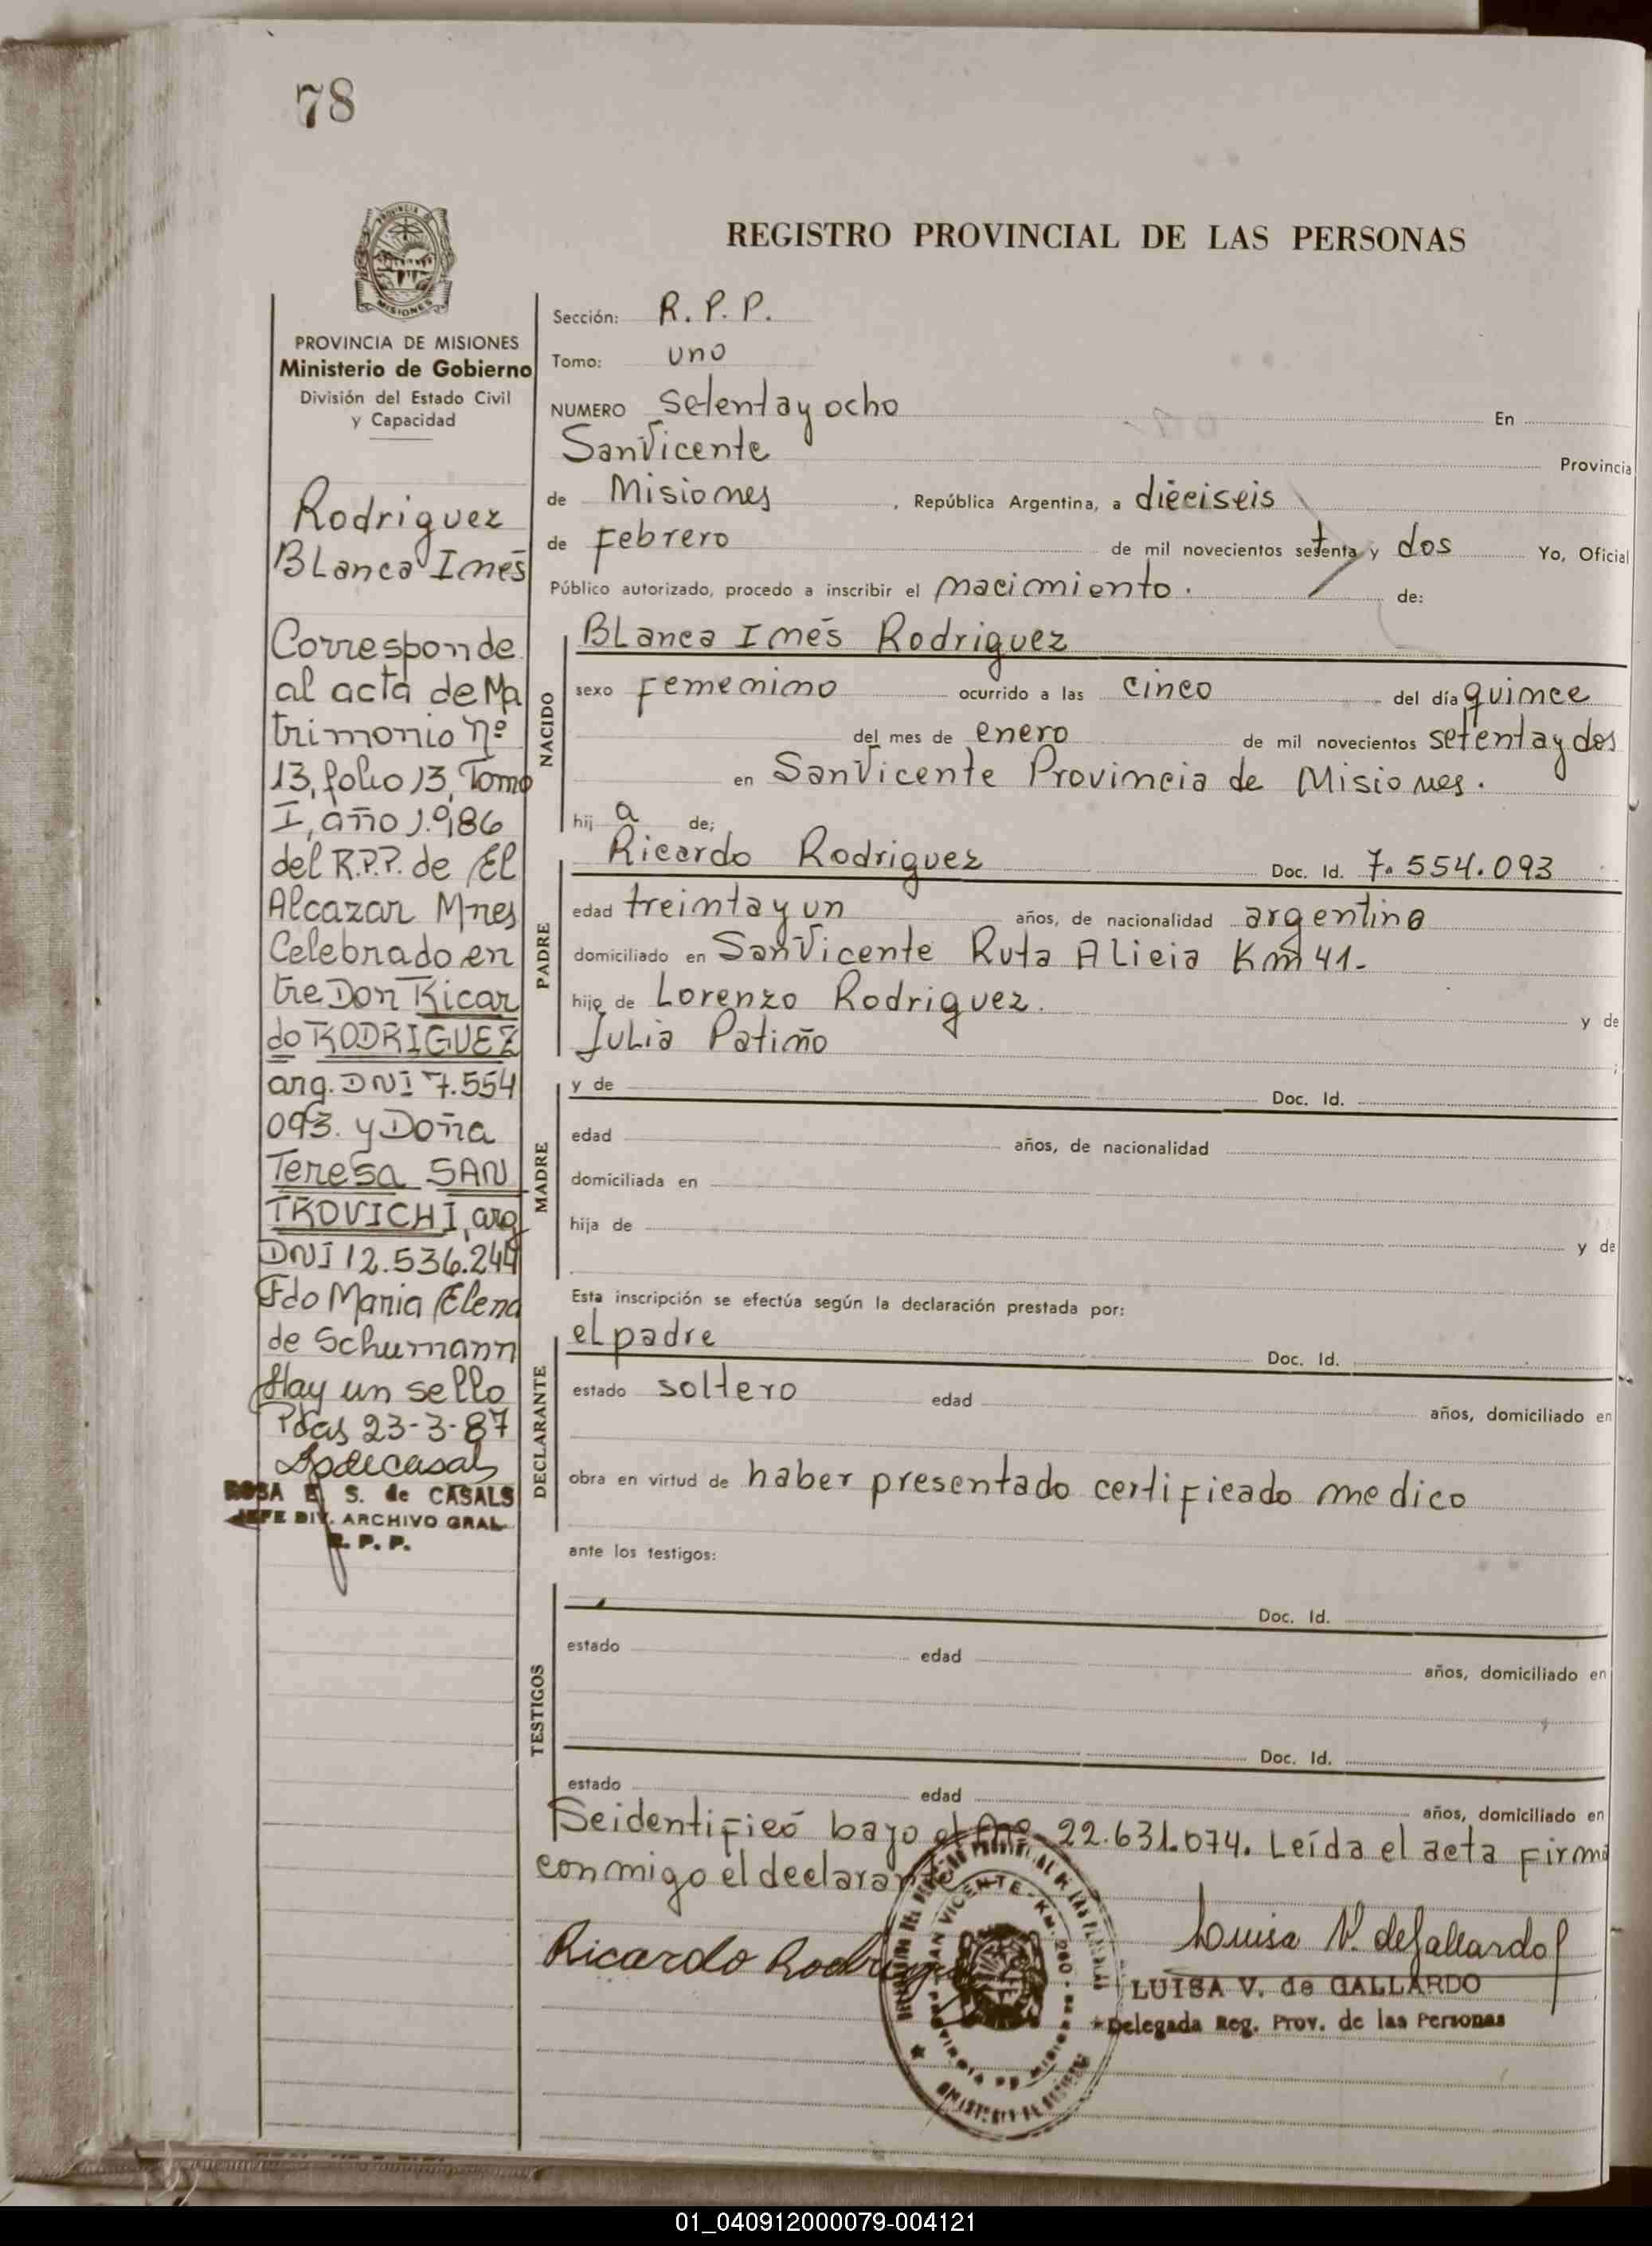 78
REGISTRO PROVINCIAL DE LAS PERSONAS
PROVINCIA DE
MISIONES
PROVINCIA DE MISIONES
Ministerio de Gobierno
División del Estado Civil
y Capacidad
Rodriguez
Blanca Inés
Corresponde
al acta de Ma
trimonio nº
13, folio 13, Tomo
I, año 1.986
del R.P.P. de El
Alcazar Mnes
Celebrado en
tre Don Ricar
do RODRIGUEZ
arg. DNI 7.554
093. y Doña
Teresa SAN
TROVICHI, arg
DNI 12.536.244
Fdo Maria Elena
de Schumann
Hay un sello
Pdas 23-3-87
ROSA E. S. de CASALS
JEFE DIV. ARCHIVO GRAL.
R. P. P.
Sección: R. P. P.
Tomo: uno
NUMERO setenta y ocho En
San Vicente Provincia
de Misiones , República Argentina, a dieciseis
de Febrero de mil novecientos setenta y dos Yo, Oficial
Público autorizado, procedo a inscribir el nacimiento. de:
NACIDO
Blanca Inés Rodriguez
sexo Femenino ocurrido a las cinco del día quince
del mes de enero de mil novecientos setenta y dos
en San Vicente Provincia de Misiones.
hij a de;
PADRE
Ricardo Rodriguez Doc. Id. 7.554.093
edad treinta y un años, de nacionalidad argentina
domiciliado en San Vicente Ruta Alicia Km 41-
hijo de Lorenzo Rodriguez. y de
Julia Patiño ;
MADRE
y de Doc. Id.
edad años, de nacionalidad
domiciliada en
hija de y de
Esta inscripción se efectúa según la declaración prestada por:
DECLARANTE
el padre Doc. Id.
estado soltero edad años, domiciliado en
obra en virtud de haber presentado certificado medico
ante los testigos:
TESTIGOS
Doc. Id.
estado edad años, domiciliado en
Doc. Id.
estado edad años, domiciliado en
Se identificó bajo el 22.631.074. Leída el acta firma
conmigo el declarante
Ricardo Rodriguez
Luisa V. de Gallardo
LUISA V. de GALLARDO
Delegada Reg. Prov. de las Personas
SAN VICENTE - KM. 200
01_040912000079-004121